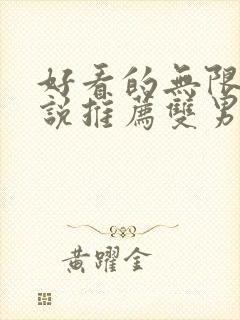 好看的無限
說推薦雙男
黃躍金